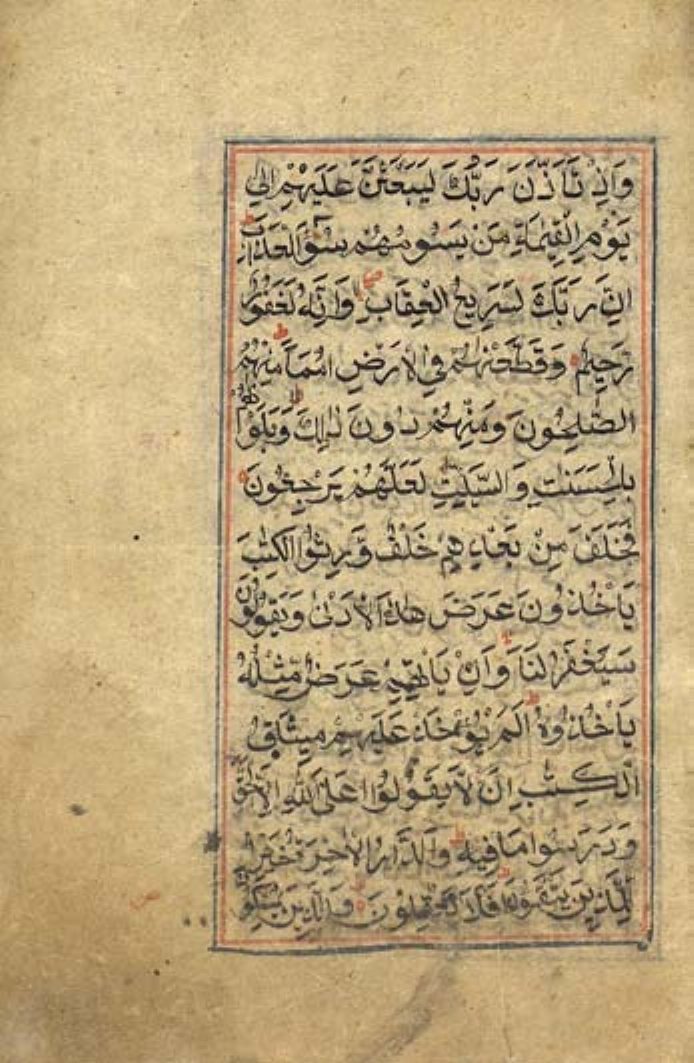 وَاِذْ تَاَذَّنَ رَبُّكَ لَيَبْعَثَنَّ عَلَيْهِمْ اِلٰى
يَوْمِ الْقِيٰمَةِ مَنْ يَسُومُهُمْ سُوْٓءَ الْعَذَابِ
اِنَّ رَبَّكَ لَسَرِيعُ الْعِقَابِ وَاِنَّهُ لَغَفُورٌ
رَحِيمٌ وَقَطَّعْنٰهُمْ فِى الْاَرْضِ اُمَمًا مِنْهُمُ
الصّٰلِحُونَ وَمِنْهُمْ دُونَ ذٰلِكَ وَبَلَوْنٰهُمْ
بِالْحَسَنٰتِ وَالسَّيِّئٰتِ لَعَلَّهُمْ يَرْجِعُونَ
فَخَلَفَ مِنْ بَعْدِهِمْ خَلْفٌ وَرِثُوا الْكِتٰبَ
يَاْخُذُونَ عَرَضَ هٰذَا الْاَدْنٰى وَيَقُولُونَ
سَيُغْفَرُ لَنَا وَاِنْ يَاْتِهِمْ عَرَضٌ مِثْلُهُ
يَاْخُذُوهُ اَلَمْ يُؤْخَذْ عَلَيْهِمْ مِيثَاقُ
الْكِتٰبِ اَنْ لَا يَقُولُوا عَلَى اللّٰهِ اِلَّا الْحَقَّ
وَدَرَسُوا مَا فِيهِ وَالدَّارُ الْاٰخِرَةُ خَيْرٌ
لِلَّذِينَ يَتَّقُونَ اَفَلَا تَعْقِلُونَ وَالَّذِينَ يُمَسِّكُونَ